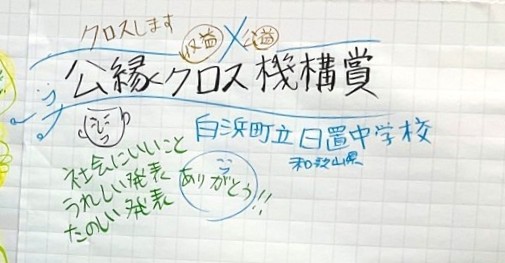 クロスします
収益×公益
公縁クロス機構賞
白浜町立日置中学校
和歌山県
社会にいいこと
うれしい発表
たのしい発表
ありがとう!!